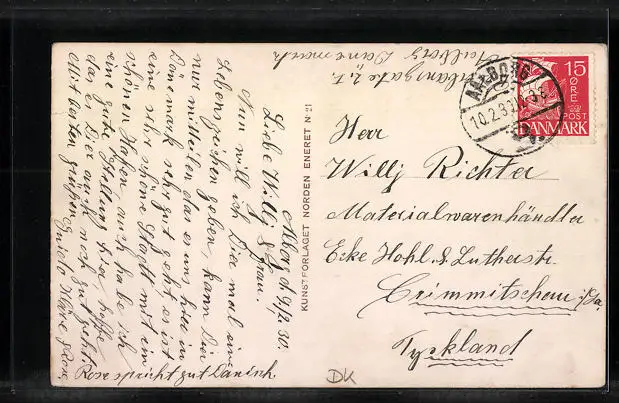 Aalborg d 9/2 30.
Liebe Willj & Frau.
Nun will ich Dier mal ein
Lebenszeichen geben, kann Dier
nur mitteilen das es uns hier in
Dänemark sehr gut geht, es ist
eine sehr schöne Stadt mit ein
schönen Hafen, auch habe ich
eine gute Stellung hier, hoffe
das es Dier auch noch gut geht.
Mit besten grüßen Guido Marx & Rose
Rose spricht gut Dänisch
KUNSTFORLAGET NORDEN ENERET No 21
Aalborg Danemark
AALBORG
10.2.30
15
ØRE
POST
DANMARK
Herr
Willj Richter
Materialwarenhändler
Ecke Hohl. & Lutherstr.
Crimmitschau i/Sa.
Tyskland
DK